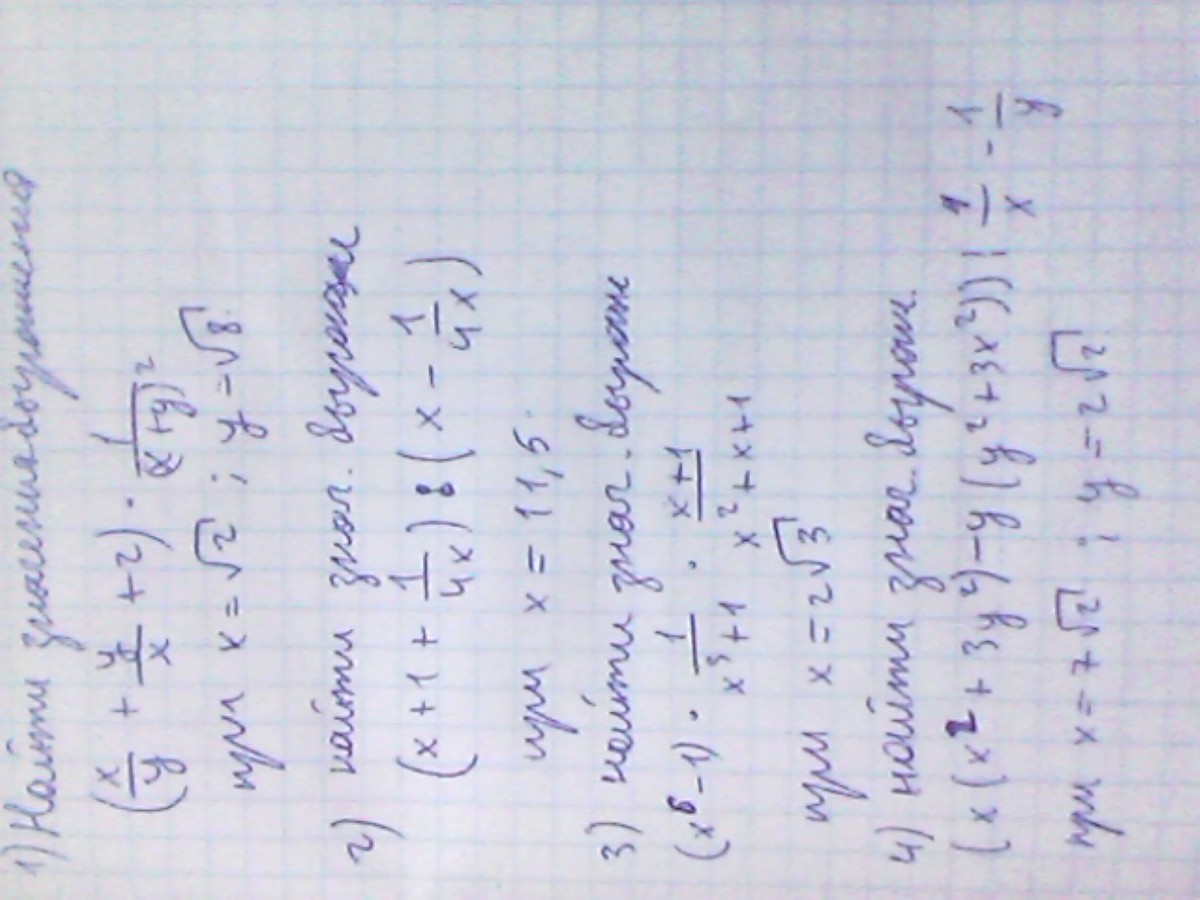 1) Найти значения выражения
(x/y + y/x + 2) · 1/(x+y)²
при x = √2 ; y = √8.
2) найти знач. выражен
(x + 1 + 1/4x) : (x - 1/4x)
при x = 11,5
3) найти знач. выраж
(x⁶ - 1) · 1/x³+1 · x+1/x²+x+1
при x = 2√3
4) найти знач. выраж.
(x(x² + 3y²) - y(y² + 3x²)) : 1/x - 1/y
при x = 7√2 ; y = 2√2